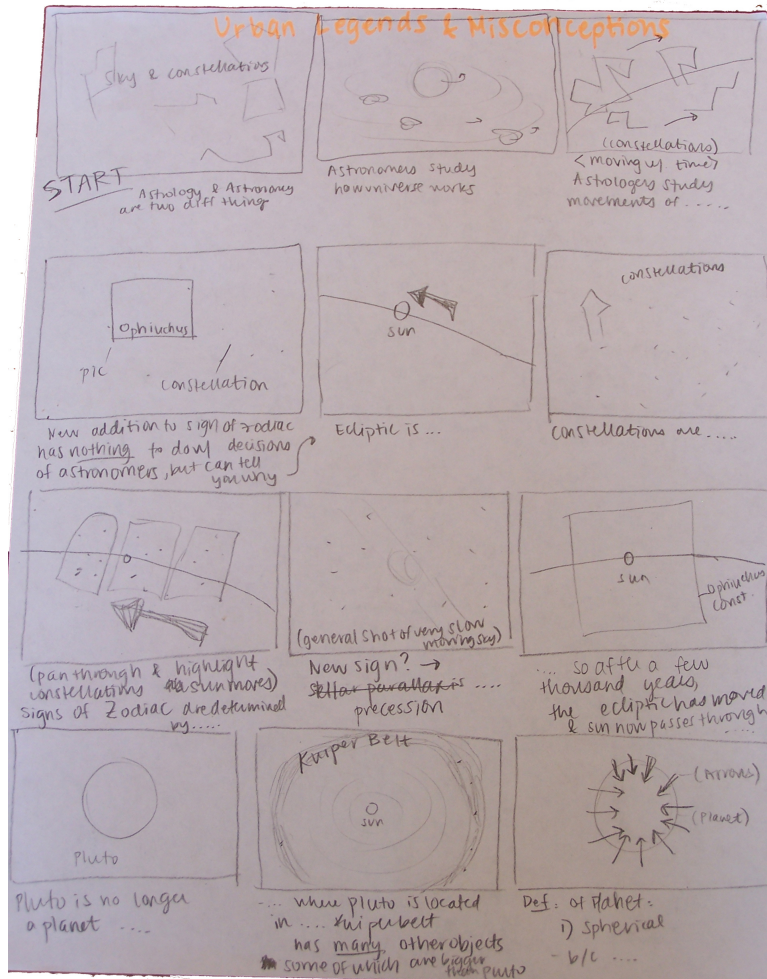 Urban Legends & Misconceptions
Sky & constellations
START
Astrology & Astronomy
are two diff thing
Astronomers study
how universe works
(constellations)
<moving w/ time>
Astrologers study
movements of .....
Ophiuchus
pic
constellation
New addition to sign of zodiac
has nothing to do w/ decisions
of astronomers, but can tell
you why
sun
Ecliptic is ...
constellations
constellations are .....
(pan through & highlight
constellations as sun moves)
signs of Zodiac are determined
by .....
(general shot of very slow
moving sky)
New sign? →
stellar parallax is ....
precession
sun
Ophiuchus
const.
.... so after a few
thousand years,
the ecliptic has moved
& sun now passes through
.....
Pluto
Pluto is no longer
a planet ....
Kuiper Belt
sun
.... where pluto is located
in .... kuiper belt
has many other objects
some of which are bigger
than pluto
(Arrows)
(Planet)
Def: of Planet:
i) spherical
- b/c ....